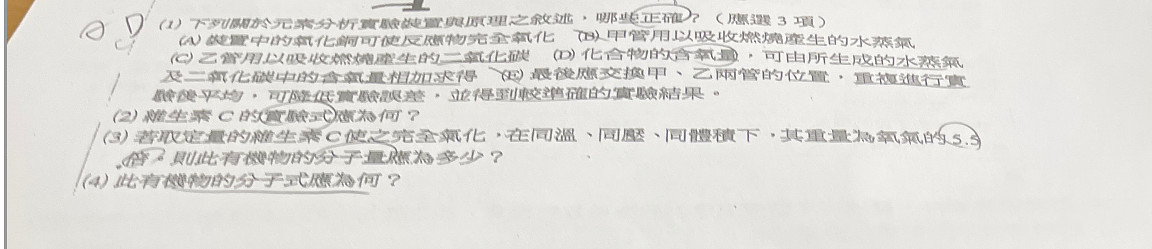 (1) 下列關於元素分析實驗裝置與原理之敘述，哪些正確？（應選 3 項）
(A) 裝置中的氧化銅可使反應物完全氧化 (B) 甲管用以吸收燃燒產生的水蒸氣
(C) 乙管用以吸收燃燒產生的二氧化碳 (D) 化合物的含氧量，可由所生成的水蒸氣
及二氧化碳中的含氧量相加求得 (E) 最後應交換甲、乙兩管的位置，重複進行實
驗後平均，可降低實驗誤差，並得到較準確的實驗結果。
(2) 維生素 C 的實驗式應為何？
(3) 若取定量的維生素 C 使之完全氣化，在同溫、同壓、同體積下，其重量為氧氣的 5.5
倍，則此有機物的分子量應為多少？
(4) 此有機物的分子式應為何？